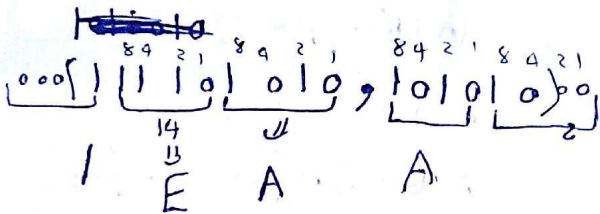 8 4 2 1 8 4 2 1 8 4 2 1 8 4 2 1
000(1 1110 1010 , 1010 10)00
14 ⇓
⇓
1 E A A